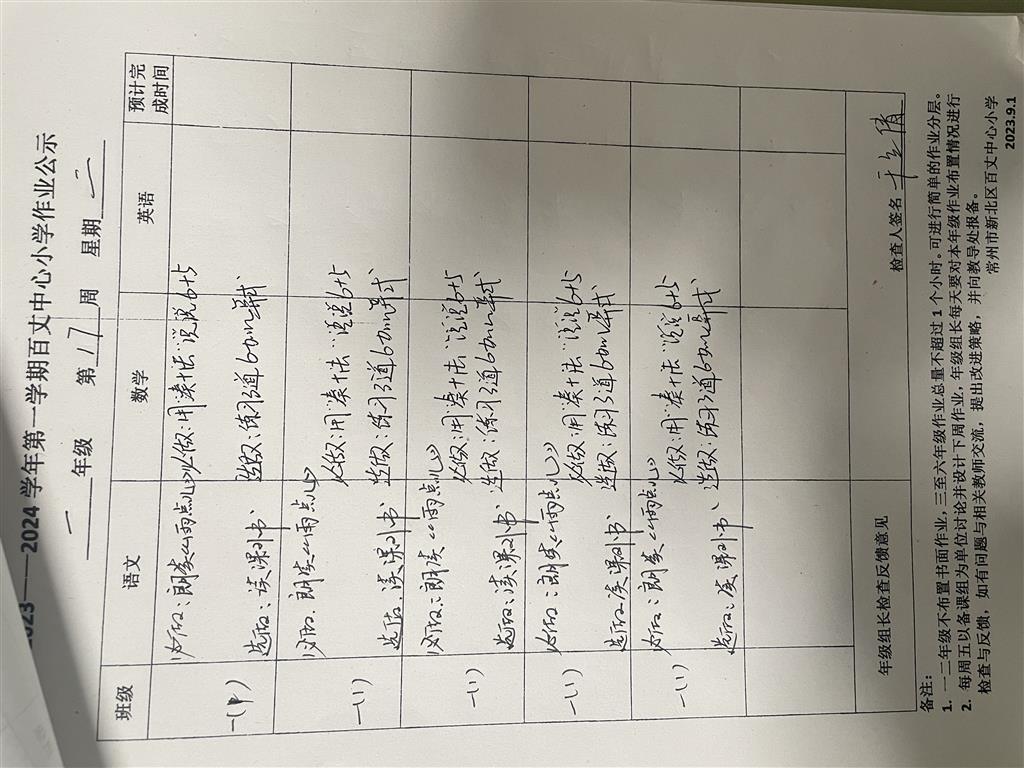 2023——2024 学年第一学期百丈中心小学作业公示
一 年级 第 17 周 星期 二
班级 语文 数学 英语 预计完成时间
必做：朗读《雨点儿》 必做：用“凑十法”说说6+5
选做：读课外书 选做：练习3道6加几算式
必做：朗读《雨点儿》 必做：用“凑十法”说说6+5
一(1) 选做：读课外书 选做：练习3道6加几算式
必做：朗读《雨点儿》 必做：用“凑十法”说说6+5
一(1) 选做：读课外书 选做：练习3道6加几算式
必做：朗读《雨点儿》 必做：用“凑十法”说说6+5
一(1) 选做：读课外书 选做：练习3道6加几算式
必做：朗读《雨点儿》 必做：用“凑十法”说说6+5
一(1) 选做：读课外书 选做：练习3道6加几算式
年级组长检查反馈意见 检查人签名
备注：
1. 一二年级不布置书面作业，三至六年级作业总量不超过 1 个小时。可进行简单的作业分层。
2. 每周五以备课组为单位讨论并设计下周作业，年级组长每天要对本年级作业布置情况进行
检查与反馈，如有问题与相关教师交流，提出改进策略，并向教导处报备。
常州市新北区百丈中心小学
2023.9.1